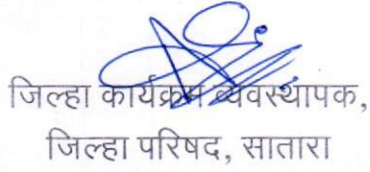 जिल्हा कार्यक्रम व्यवस्थापक,
जिल्हा परिषद, सातारा